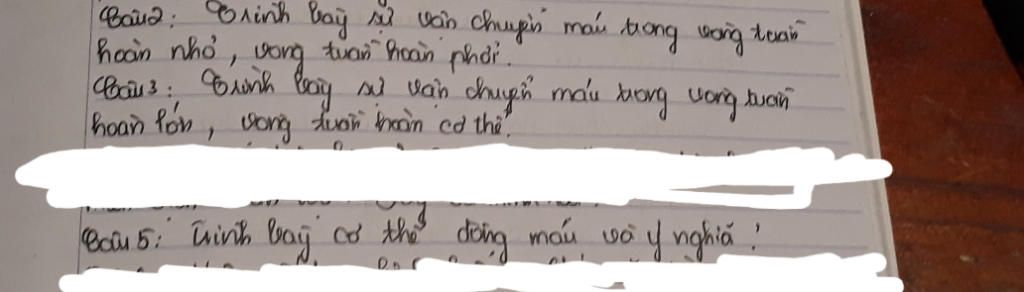 Câu 2: Trình bày sự vận chuyển máu trong vòng tuần
hoàn nhỏ, vòng tuần hoàn phổi.
Câu 3: Trình bày sự vận chuyển máu trong vòng tuần
hoàn lớn, vòng tuần hoàn cơ thể.
Câu 5: Trình bày cơ thể đông máu và ý nghĩa?